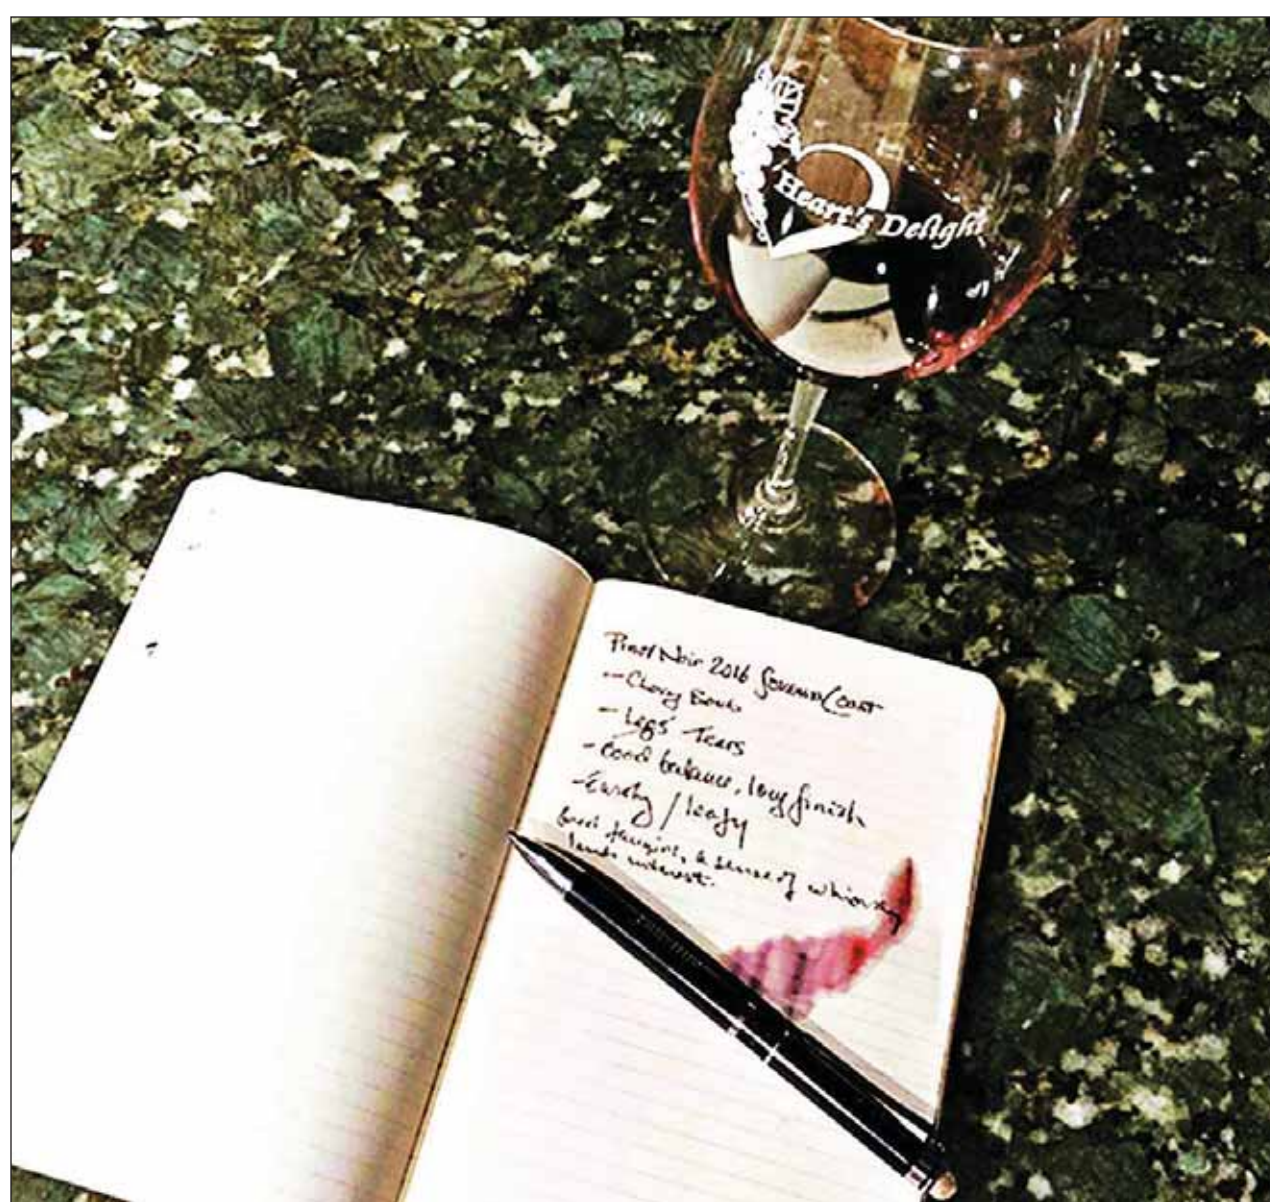 Heart's Delight
Pinot Noir 2016 Sonoma Coast
- Cherry Bomb
- Legs Tears
- Good balance, long finish
- Earthy / leafy
a sense of whimsy
lends interest.